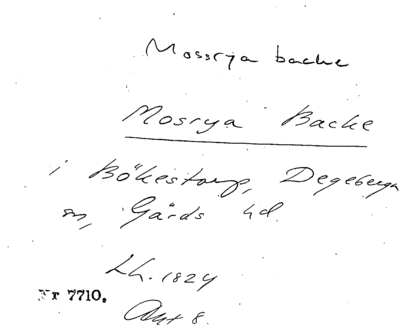 Mossrya backe
Mosrya Backe
i Bökestorp, Degeberga
sn, Gärds hd.
Lh. 1824
Nr 7710.
Akt 8.